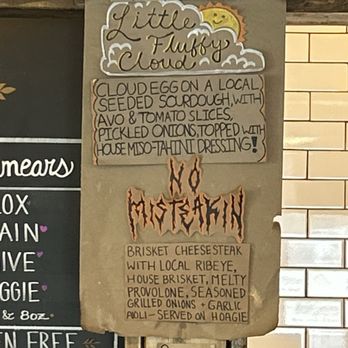 Little
Fluffy
Cloud
CLOUD EGG ON A LOCAL
SEEDED SOURDOUGH, WITH
AVO & TOMATO SLICES,
PICKLED ONIONS, TOPPED WITH
HOUSE MISO-TAHINI DRESSING!
NO
MISTEAKIN
BRISKET CHEESESTEAK
WITH LOCAL RIBEYE,
HOUSE BRISKET, MELTY
PROVOLONE, SEASONED
GRILLED ONIONS + GARLIC
AIOLI - SERVED ON HOAGIE
mears
OX
AIN
IVE
GGIE
& 8oz
EN FREE